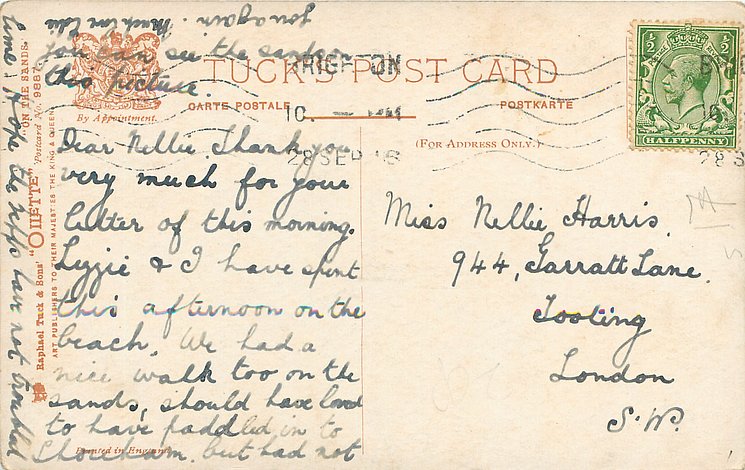 TUCK'S POST CARD
CARTE POSTALE
POSTKARTE
By Appointment.
(FOR ADDRESS ONLY.)
BRIGHTON
10. — PM
28 SEP 16
HALFPENNY
½ ½
28 S
Dear Nellie. Thank you
very much for your
letter of this morning.
Lizzie & I have spent
this afternoon on the
beach. We had a
nice walk too on the
sands, should have loved
to have paddled in to
Shoreham. but had not
time. Hope the Zepps have not troubled
you again. Much love Edie
You can see the sands on
this picture.
Miss Nellie Harris.
944, Garratt Lane.
Tooting
London
S.W.
Raphael Tuck & Sons' "OILETTE" Postcard No. 9887 "ON THE SANDS."
ART PUBLISHERS TO THEIR MAJESTIES THE KING & QUEEN
Printed in England